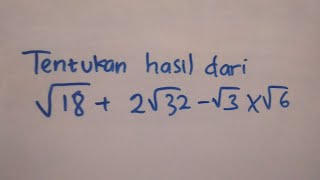 Tentukan hasil dari
√18 + 2√32 - √3 x √6